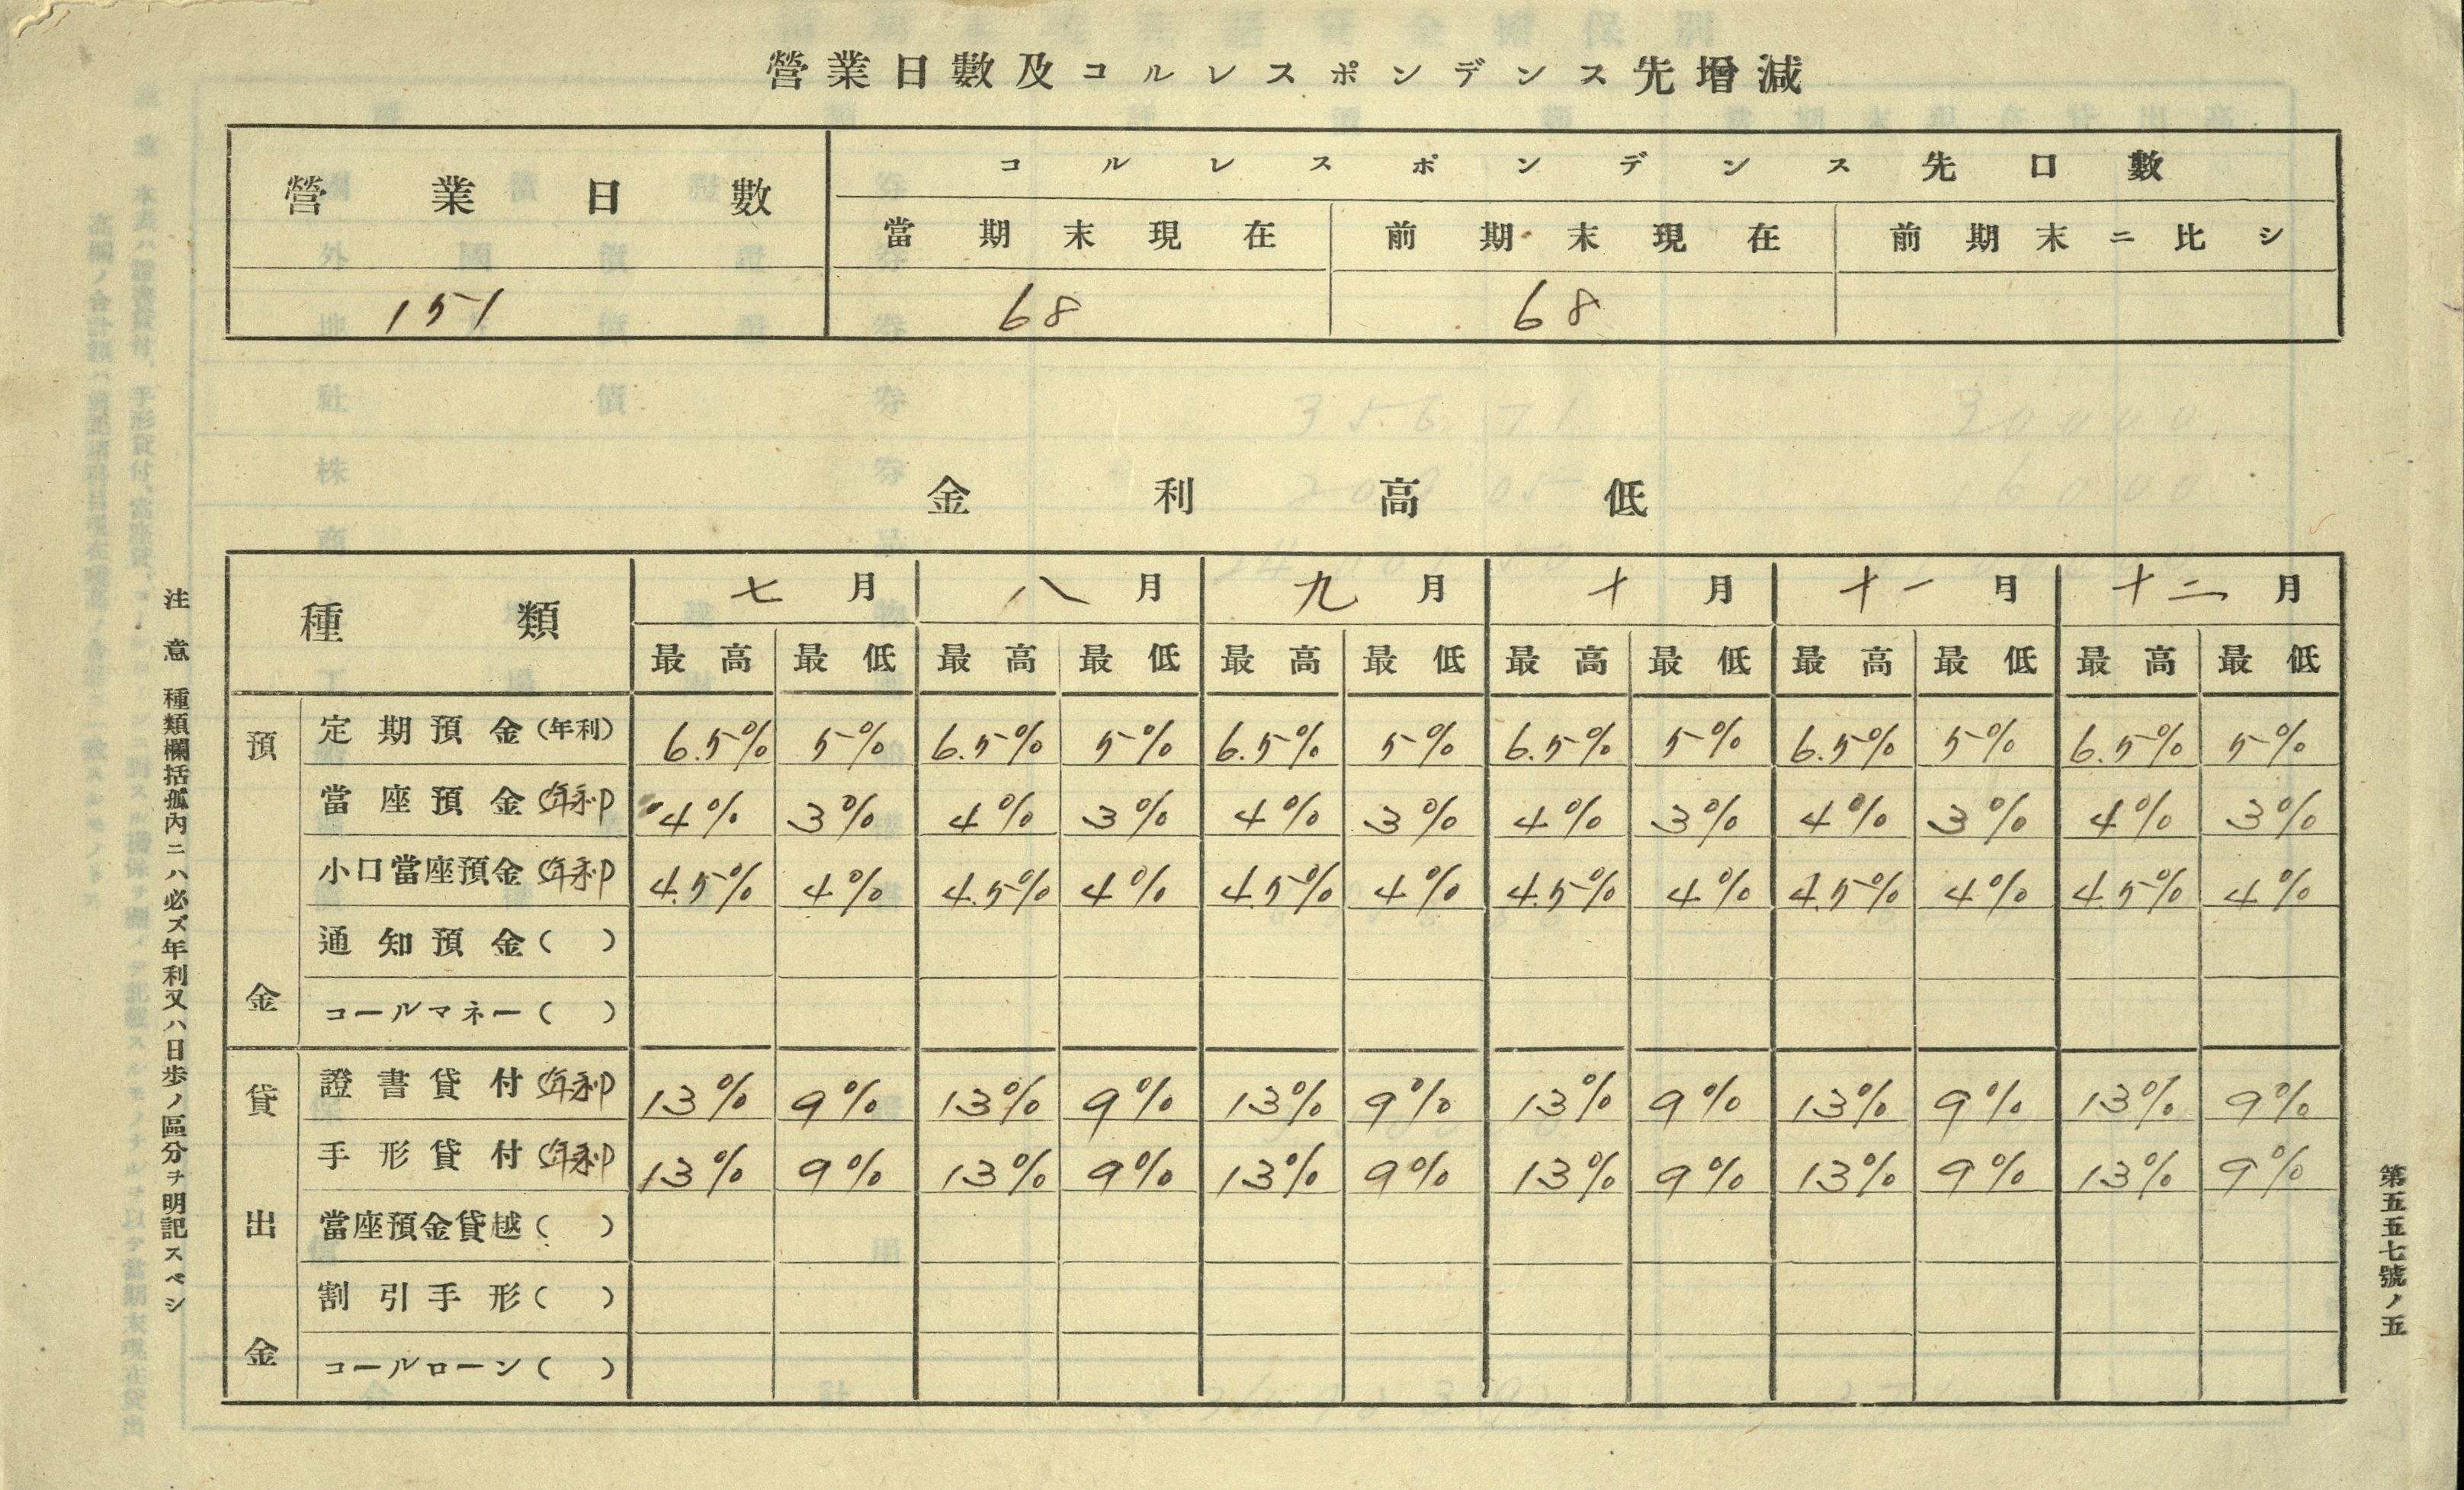 營業日數及コルレスポンデンス先增減
營業日數 コルレスポンデンス先口數
當期末現在 前期末現在 前期末ニ比シ
151 68 68
金利高低
種類 七月 八月 九月 十月 十一月 十二月
最高 最低 最高 最低 最高 最低 最高 最低 最高 最低 最高 最低
預金
定期預金(年利) 6.5% 5% 6.5% 5% 6.5% 5% 6.5% 5% 6.5% 5% 6.5% 5%
當座預金(年利) 4% 3% 4% 3% 4% 3% 4% 3% 4% 3% 4% 3%
小口當座預金(年利) 4.5% 4% 4.5% 4% 4.5% 4% 4.5% 4% 4.5% 4% 4.5% 4%
通知預金( )
コールマネー( )
貸出金
證書貸付(年利) 13% 9% 13% 9% 13% 9% 13% 9% 13% 9% 13% 9%
手形貸付(年利) 13% 9% 13% 9% 13% 9% 13% 9% 13% 9% 13% 9%
當座預金貸越( )
割引手形( )
コールローン( )
注意 種類欄括孤內ニハ必ズ年利又ハ日步ノ區分ヲ明記スベシ
第五五七號ノ五